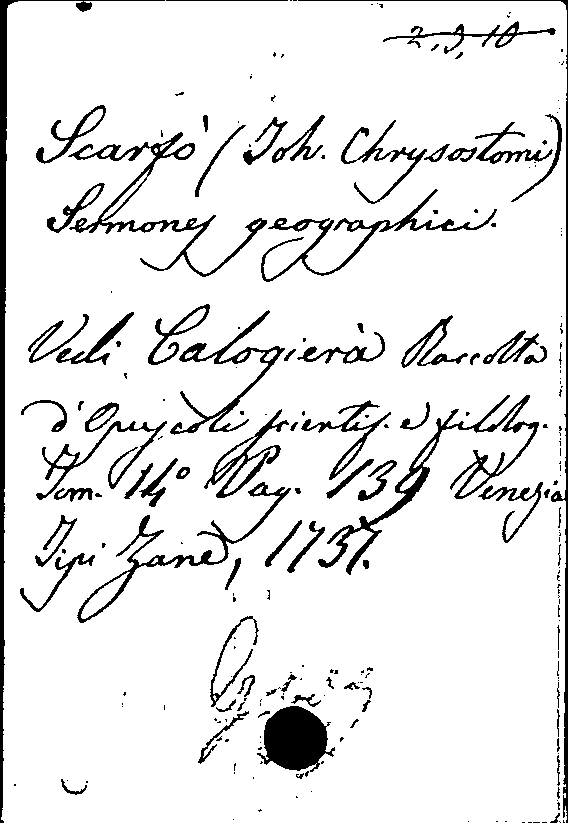 2, 9, 10
Scarfò (Joh. Chrysostomi)
Sermones geographici.
Vedi Calogierà Raccolta
d'Opuscoli scientif. e filolog.
Tom. 14° Pag. 139 Venezia
Tipi Zane, 1737.